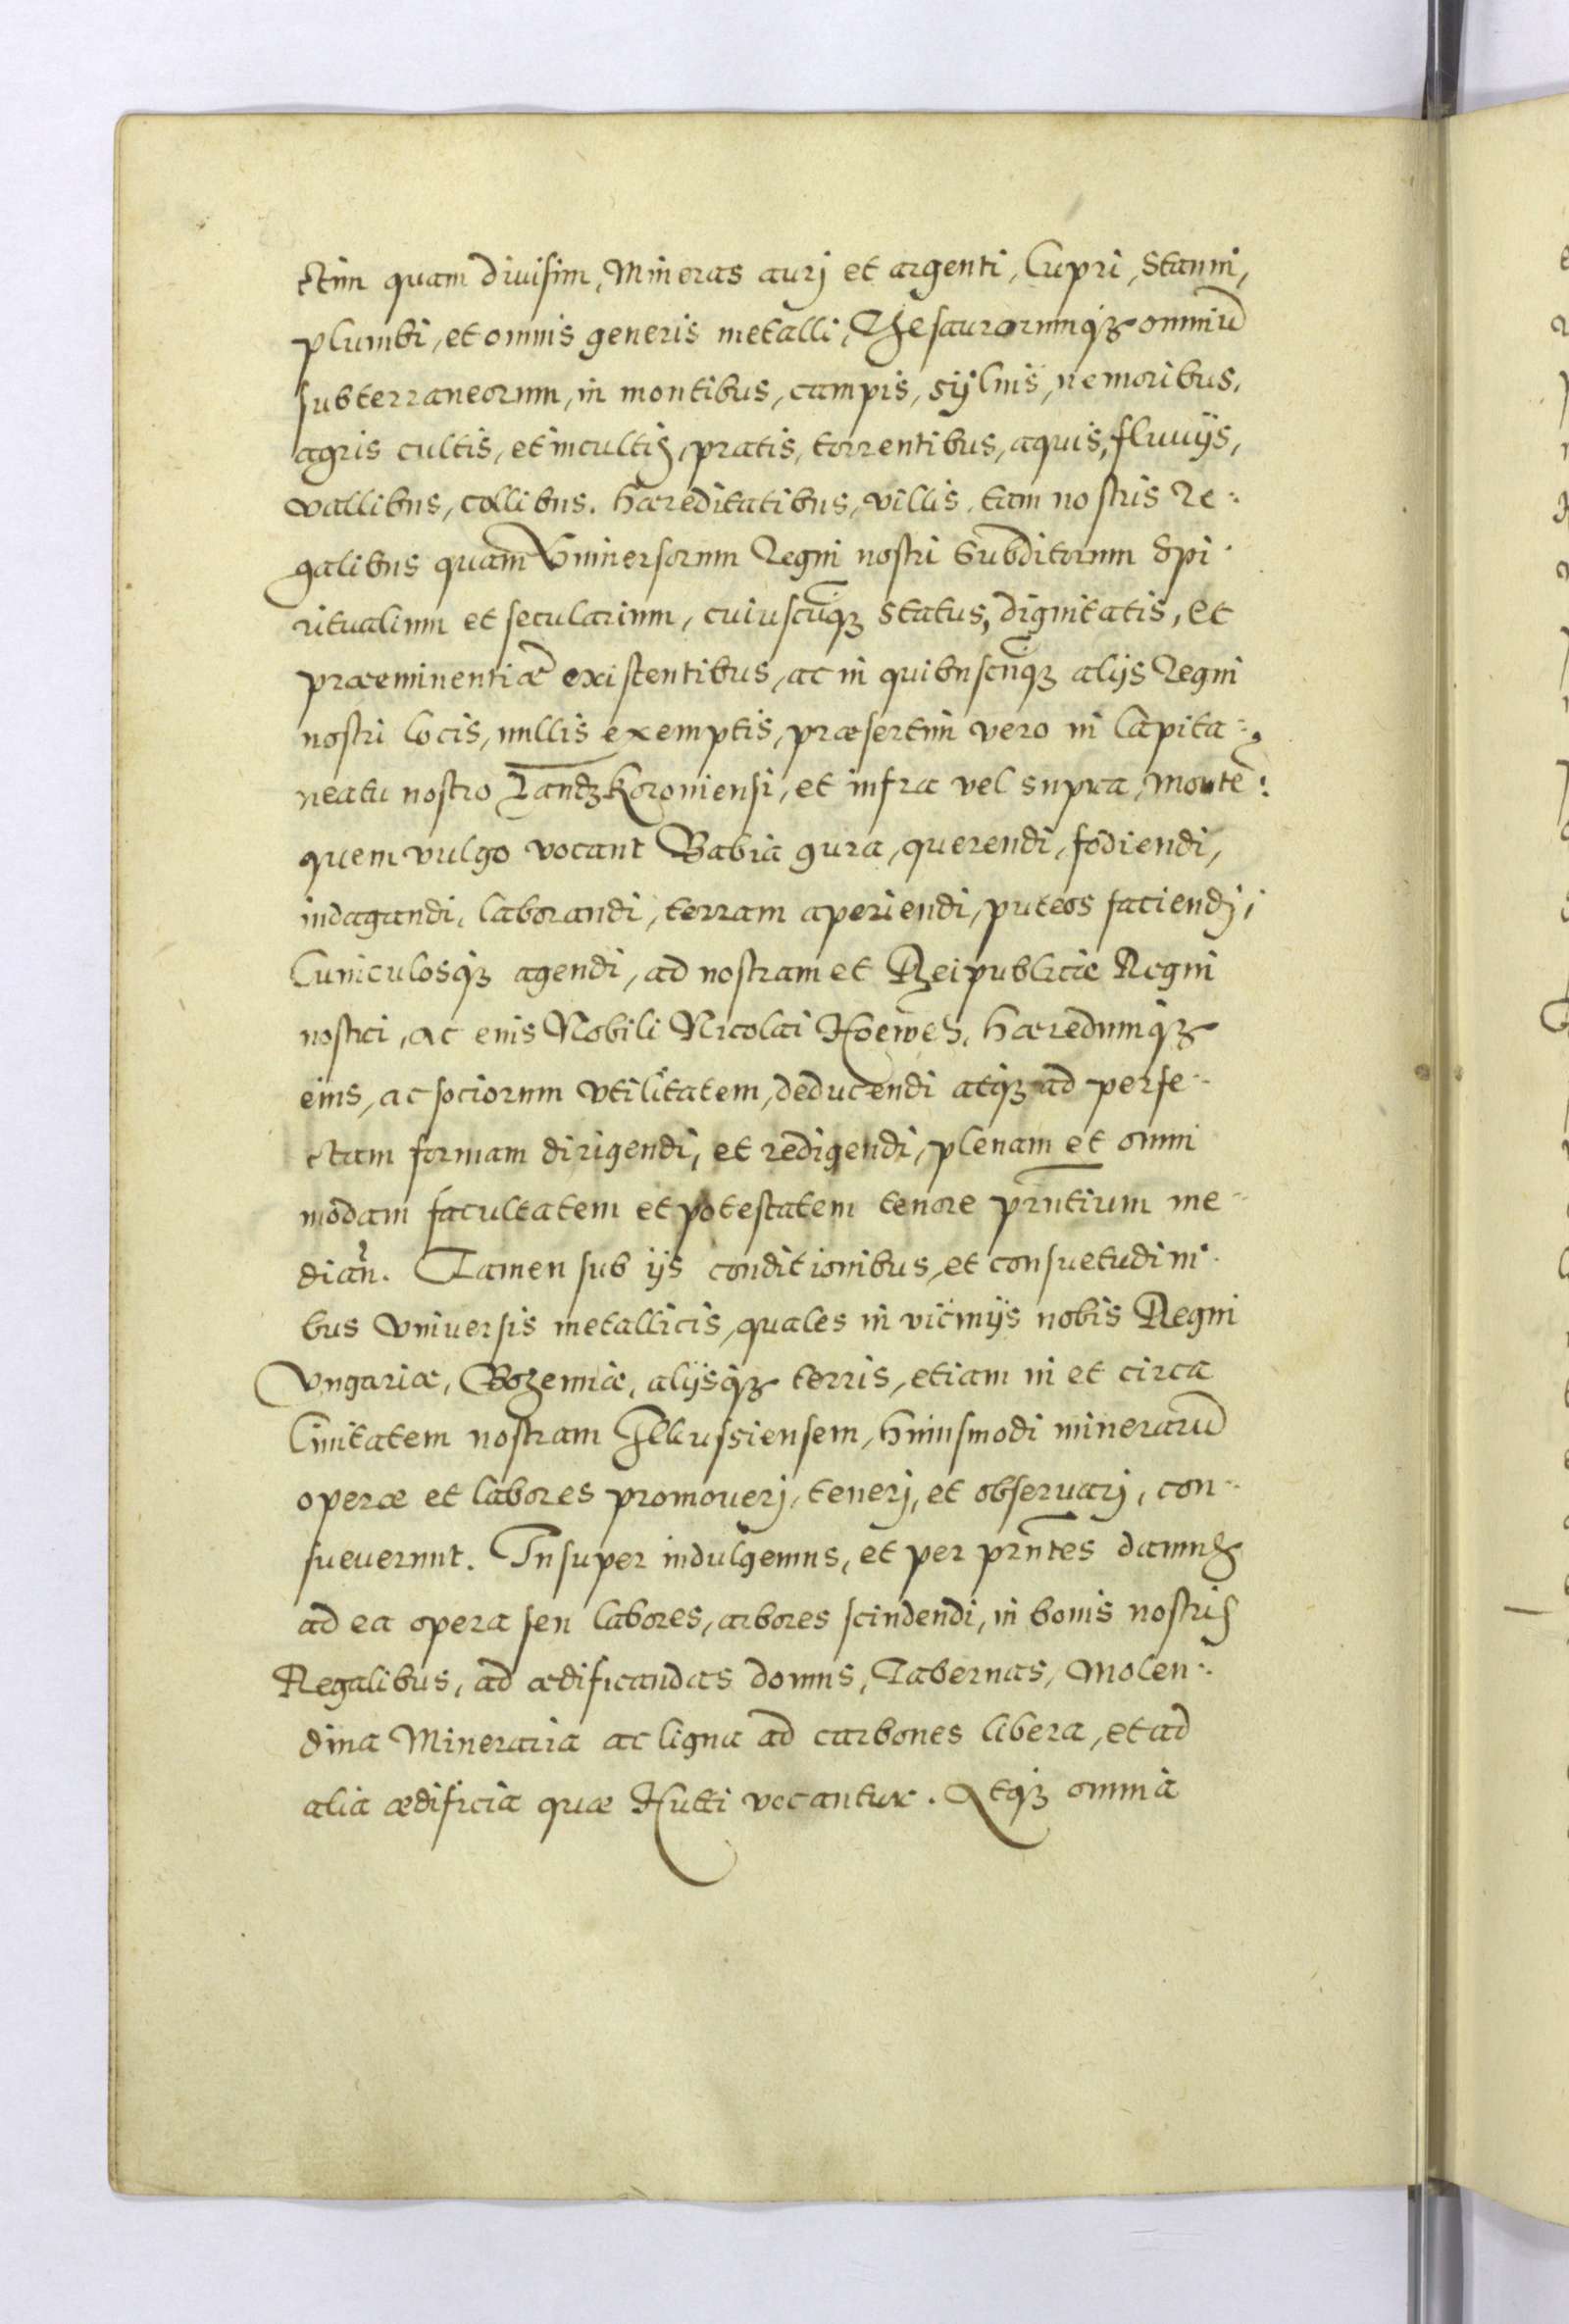 ctim quam divisim, Mineras aurj et argenti, Cupri, Stanni,
plumbi, et omnis generis metalli, Thesaurorumqʒ omniū
subterraneorum, in montibus, campis, sÿluis, nemoribus,
agris cultis, et incultis, pratis, torrentibus, aquis, fluuijs,
vallibus, collibus. hæreditatibus, villis, tam nostris Re-
galibus quam Vniuersorum Regni nostri Subditorum Spi-
ritualium et secularium, cuiuscūqʒ status, dignitatis, et
præeminentiæ existentibus, ac in quibuscūqʒ alijs Regni
nostri locis, nullis exemptis, præsertim vero in Capita-
neatu nostro Lantzkoroniensi, et infra vel supra, montē:
quem vulgo vocant Babia gura, querendi, fodiendi,
indagandi, laborandi, terram aperiendi, puteos faciendj,
Cuniculosqʒ agendi, ad nostram et Reipublicæ Regni
nostri, ac eius Nobili Nicolai Hoewel, hæredumqʒ
eius, ac sociorum vtilitatem, deducendi atqʒ ad perfe-
ctam formam dirigendi, et redigendi, plenam et omni
modam facultatem et potestatem tenore prn̄tium me-
dian̄. Tamen sub ijs conditionibus, et consuetudini-
bus vniuersis metallicis, quales in vicinijs nobis Regni
Vngariæ, Bohemiæ, alijsqʒ terris, etiam in et circa
Ciuitatem nostram Illcussiensem, huiusmodi minerarū
operæ et labores promouerj, tenerj, et obseruarj, con-
sueuerunt. Insuper indulgemus, et per prn̄tes damus
ad ea opera seu labores, arbores scindendi, in bonis nostris
Regalibus, ad ædificandas domus, Tabernas, Molen-
dina Mineraria ac ligna ad carbones libera, et ad
alia ædificia quæ Hutti vocantur. Atqʒ omnia